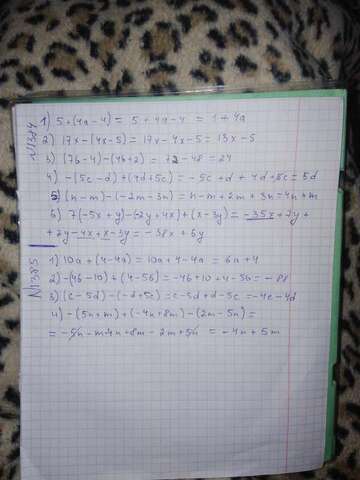 N1384 1) 5+(4a-4)= 5+4a-4 = 1+4a
2) 17x-(4x-5)=17x-4x-5=13x-5
3) (76-4)-(46+2)=72-48=24
4) -(5c-d)+(4d+5c)=-5c+d+4d+5c=5d
5) (n-m)-(-2m-3n)=n-m+2m+3n=4n+m
6) 7(-5x+y)-(-2y+4x)+(x-3y)=-35x+7y+
+2y-4x+x-3y=-38x+6y
N1385 1) 10a+(4-4a)=10a+4-4a=6a+4
2) -(46-10)+(4-56)=-46+10+4-56=-88
3) (c-5d)-(-d+5c)=c-5d+d-5c=-4c-4d
4) -(5n+m)+(-4n+8m)-(2m-5n)=
=-5n-m-4n+8m-2m+5n=-4n+5m